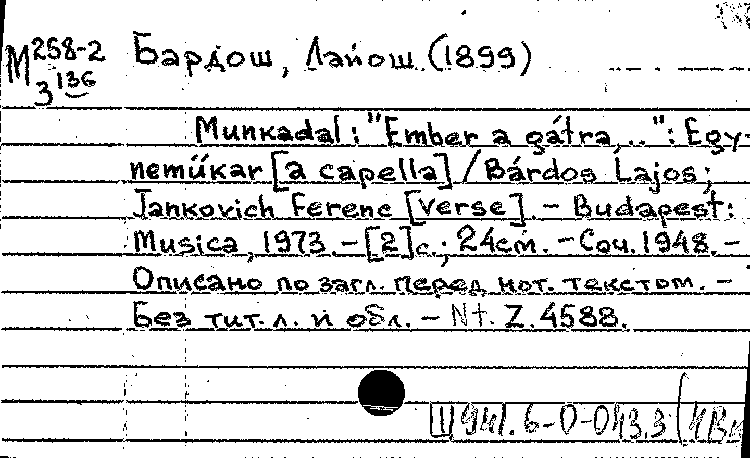 М 258-2
3 136
Бардош, Лайош (1899)
Munkadal: "Ember a gátra,..": Egy-
neműkar [a capella] / Bárdos Lajos;
Jankovich Ferenc [verse]. – Budapest:
Musica, 1973. – [2]с.; 24см. – Соч. 1948. –
Описано по загл. перед нот. текстом. –
Без тит. л. и обл. – Nt. Z. 4588.
Ш 941.6-0-043.3